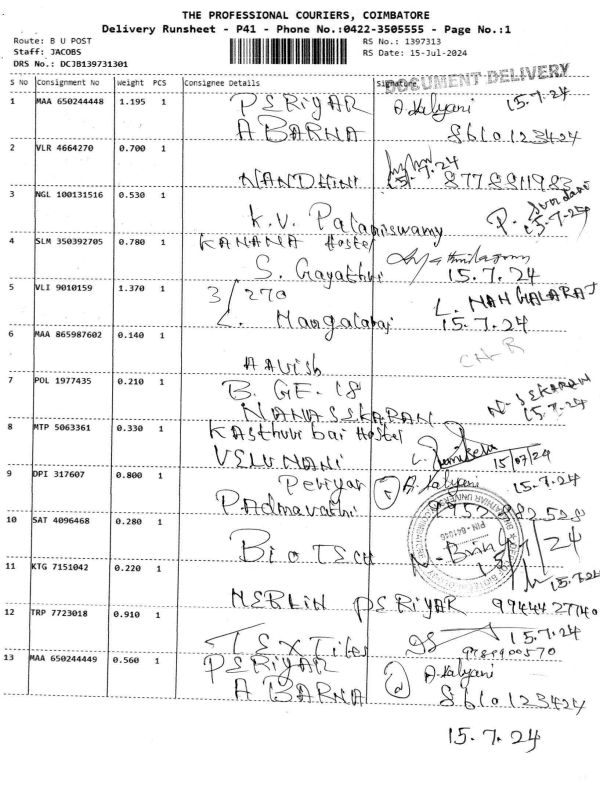 THE PROFESSIONAL COURIERS, COIMBATORE
Delivery Runsheet - P41 - Phone No.:0422-3505555 - Page No.:1
Route: B U POST
RS No.: 1397313
Staff: JACOBS
RS Date: 15-Jul-2024
DRS No.: DCJB139731301
DOCUMENT DELIVERY
S No Consignment No Weight PCS Consignee Details Signature
1 MAA 650244448 1.195 1 PERIYAR A. Kalyani 15.7.24
ABARNA 8610123424
2 VLR 4664270 0.700 1
NANDHINI 15.7.24
3 NGL 100131516 0.530 1
K.V. Palaniswamy P. 15.7.24
4 SLM 350392705 0.780 1 KANANA Hostel
S. Gayathri 15.7.24
5 VLI 9010159 1.370 1 3/270 L. MANGALARAJ
L. Mangalaraj 15.7.24
6 MAA 865987602 0.140 1
AAVISH
7 POL 1977435 0.210 1 B. GE. 18 N. SEKARAN
15.7.24
8 MTP 5063361 0.330 1 Kasthuribai Hostel
VELUMANI 15/07/24
9 DPI 317607 0.800 1 Periyar A. Kalyani 15.7.24
Padmavathi
10 SAT 4096468 0.280 1
BioTECH
11 KTG 7151042 0.220 1 15.7.24
MERLIN PERIYAR 9944427740
12 TRP 7723018 0.910 1 15.7.24
TEXTiles 9789900570
13 MAA 650244449 0.560 1 PERIYAR A. Kalyani
ABARNA 8610123424
15.7.24